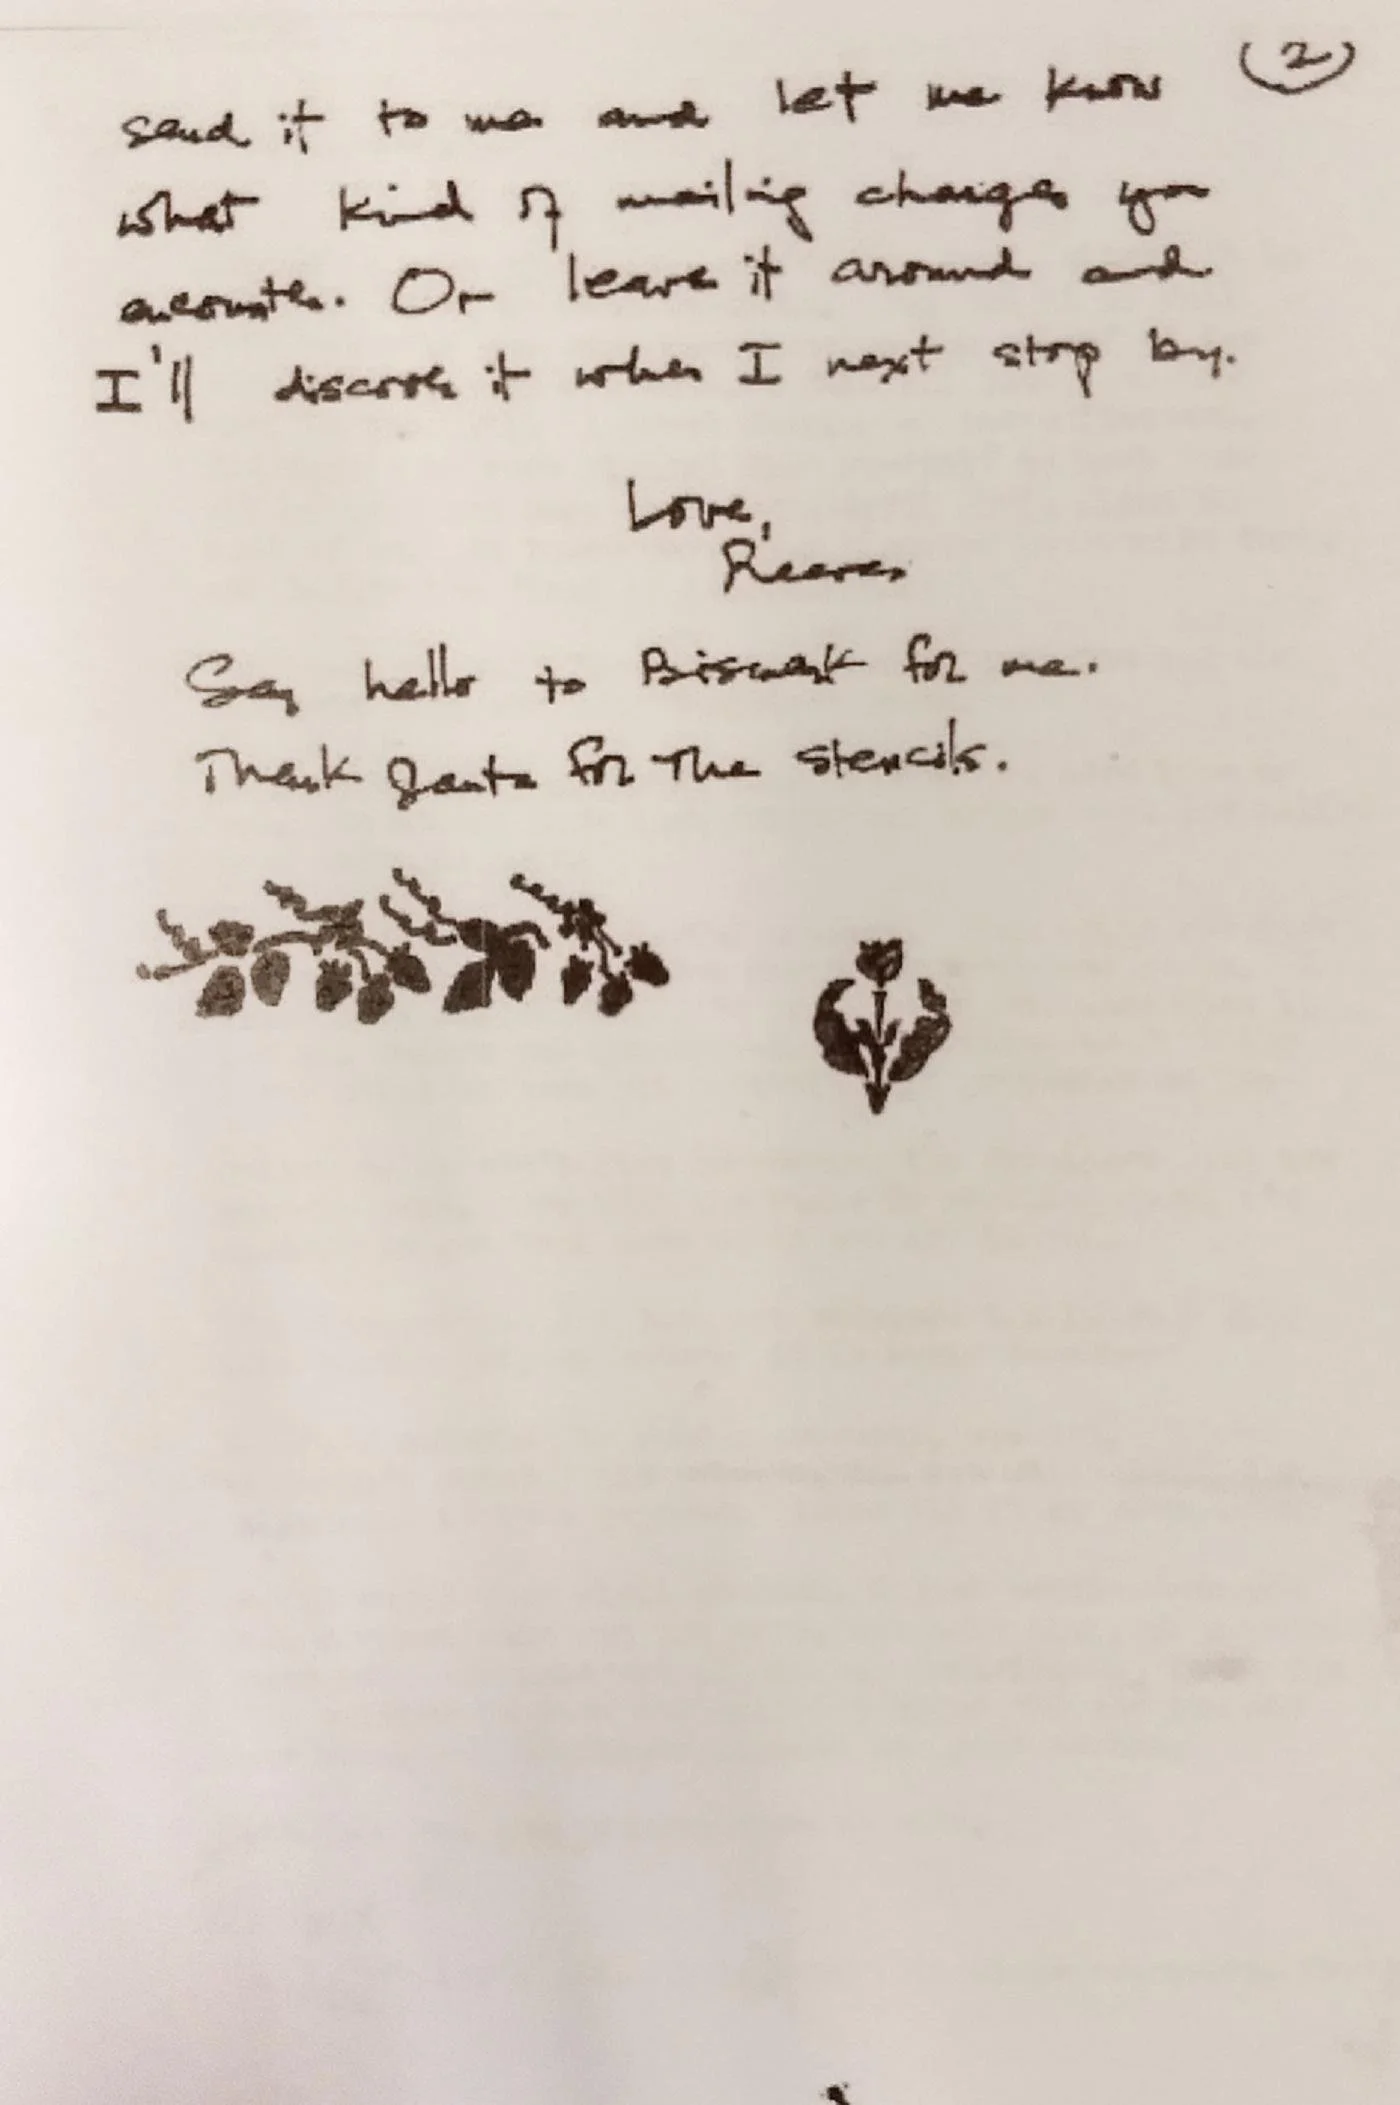 (2)
send it to me and let me know
what kind of mailing charges you
encounter. Or leave it around and
I'll discover it when I next stop by.
Love,
Reeves
Say hello to Bismark for me.
Thank Santa for the stencils.